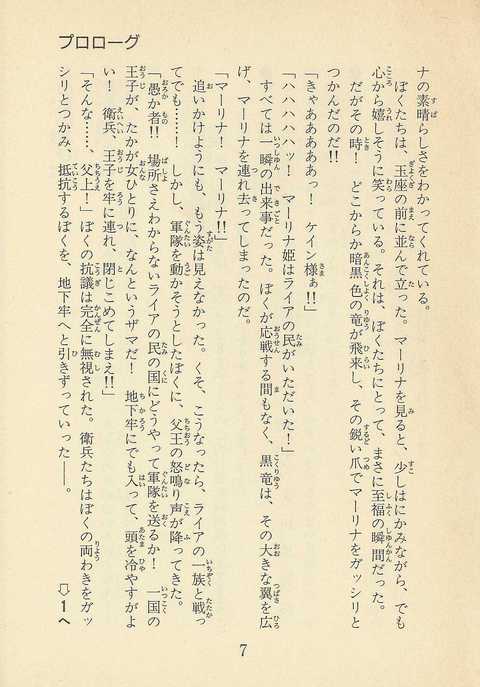 プロローグ
ナの素晴らしさをわかってくれている。
ぼくたちは、玉座の前に並んで立った。マーリナを見ると、少しはにかみながら、でも
心から嬉しそうに笑っている。それは、ぼくたちにとって、まさに至福の瞬間だった。
だがその時！　どこからか暗黒色の竜が飛来し、その鋭い爪でマーリナをガッシリと
つかんだのだ!!
「きゃあああああっ！　ケイン様ぁ!!」
「ハハハハハッ！　マーリナ姫はライアの民がいただいた！」
すべては一瞬の出来事だった。ぼくが応戦する間もなく、黒竜は、その大きな翼を広
げ、マーリナを連れ去ってしまったのだ。
「マーリナ！　マーリナ!!」
追いかけようにも、もう姿は見えなかった。くそ、こうなったら、ライアの一族と戦っ
てでも……！　しかし、軍隊を動かそうとしたぼくに、父王の怒鳴り声が降ってきた。
「愚か者!!　場所さえわからないライアの民の国にどうやって軍隊を送るか！　一国の
王子が、たかが女ひとりに、なんというザマだ！　地下牢にでも入って、頭を冷やすがよ
い！　衛兵、王子を牢に連れ、閉じこめてしまえ!!」
「そんな……、父上！」ぼくの抗議は完全に無視された。衛兵たちはぼくの両わきをガッ
シリとつかみ、抵抗するぼくを、地下牢へと引きずっていった――。
⇩1へ
7